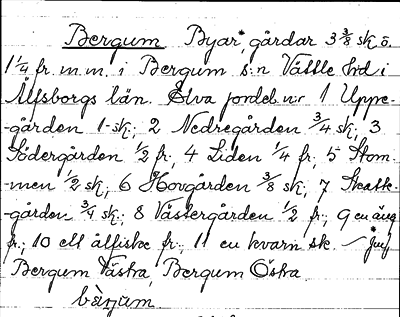 Bergum Byar*, gårdar 3 3/8 sk, ö.
1 1/4 fr. m.m. i Bergum s:n Vättle hd i
Älfsborgs län. Elva jordeb nr 1 Uppe-
-gården 1 sk.; 2 Nedregården 3/4 sk.; 3
Södergården 1/2 fr., 4 Liden 1/4 fr.; 5 Stom-
-men 1/2 sk.; 6 Hovgården 3/8 sk.; 7 Skatte-
-gården 3/4 sk.; 8 Västergården 1/2 fr.; 9 en äng
fr.; 10 ett ålfiske fr.; 11 en kvarn sk. –
Bergum Västra, Bergum Östra
bærjum